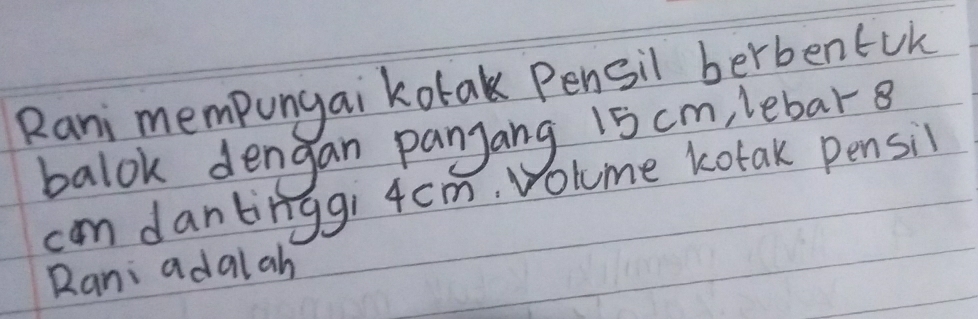 Rani mempunyai kotak Pensil berbentuk
balok dengan panjang 15 cm, lebar 8
cm dan tinggi 4cm. Volume kotak pensil
Rani adalah